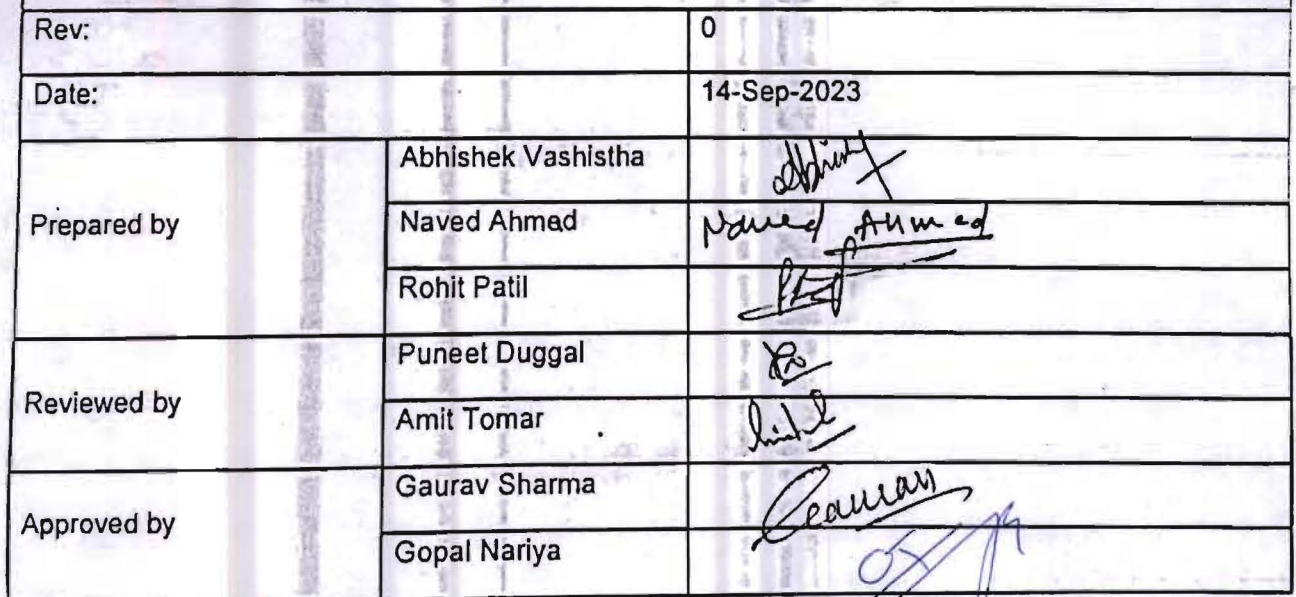 Rev: 0
Date: 14-Sep-2023
Prepared by
Abhishek Vashistha
Naved Ahmad Naved Ahmad
Rohit Patil
Reviewed by
Puneet Duggal
Amit Tomar
Approved by
Gaurav Sharma Gaurav
Gopal Nariya